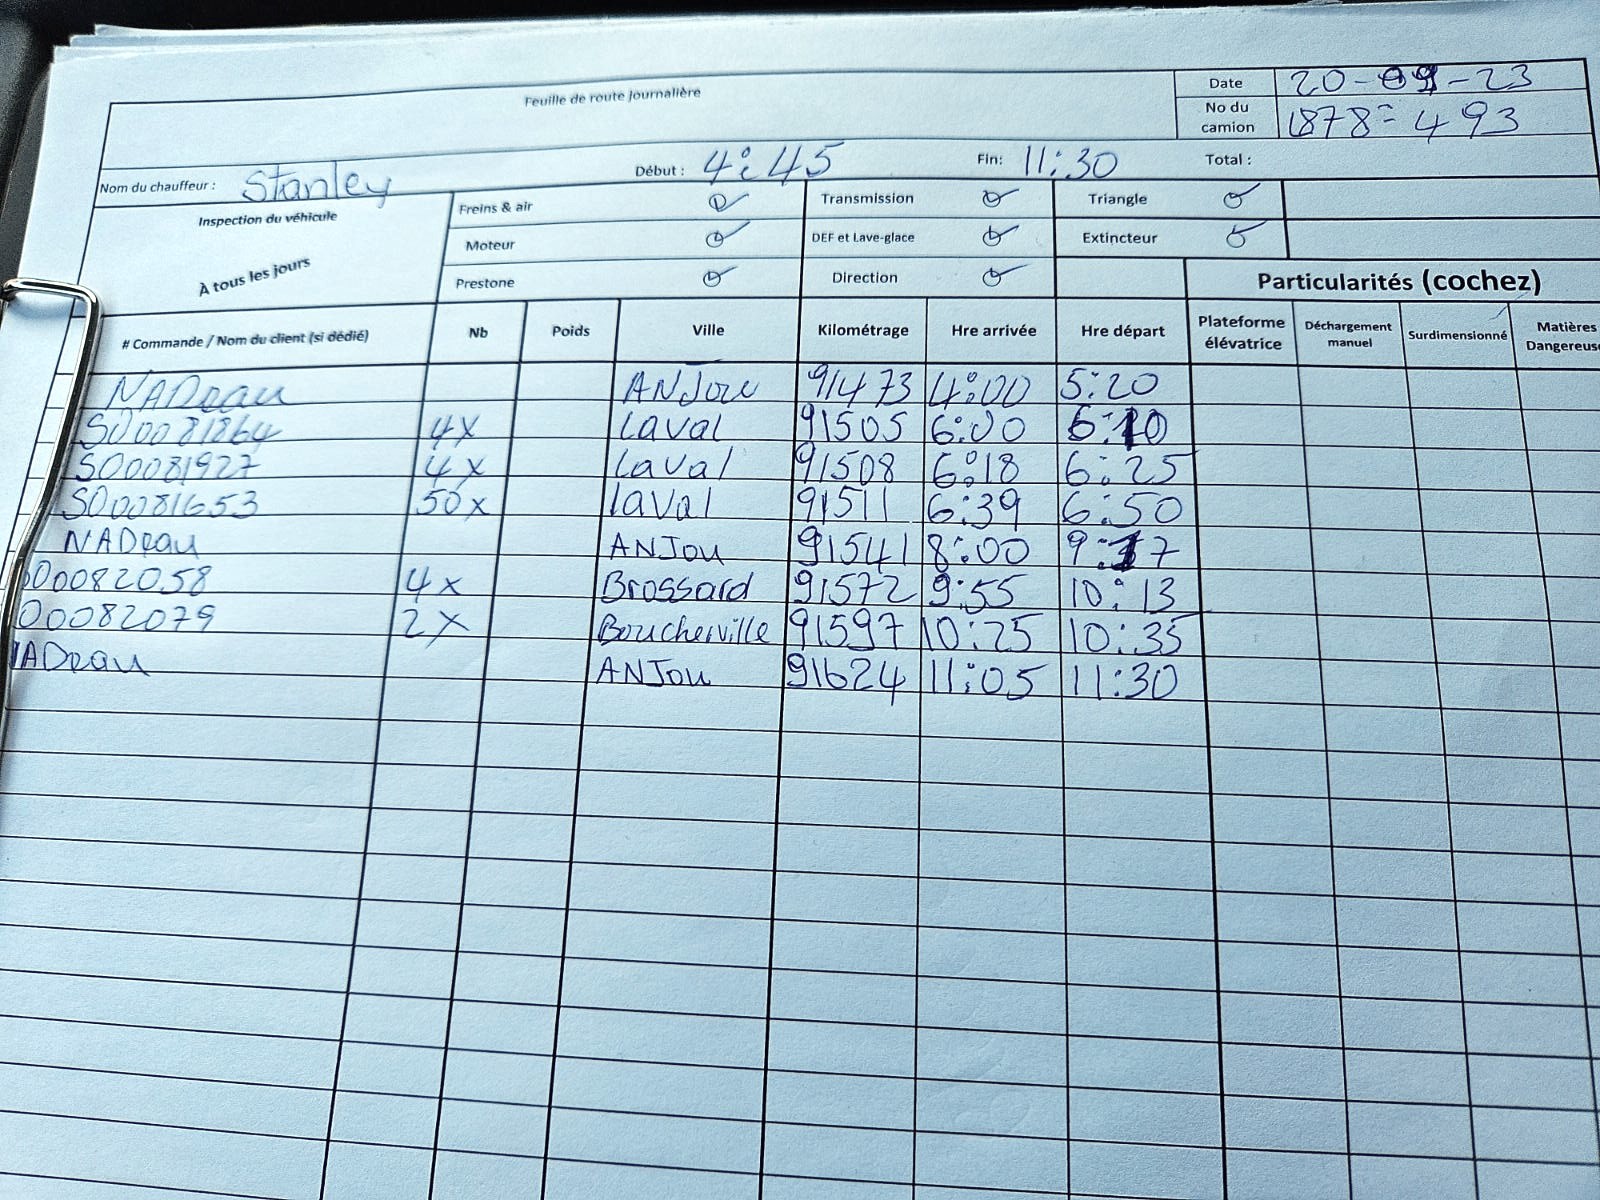 Feuille de route journalière
Date 20-09-23
No du camion 1878 = 493
Nom du chauffeur : Stanley Début : 4:45 Fin: 11:30 Total :
Inspection du véhicule
À tous les jours
Freins & air Transmission Triangle
Moteur DEF et Lave-glace Extincteur
Prestone Direction
Particularités (cochez)
# Commande / Nom du client (si dédié) Nb Poids Ville Kilométrage Hre arrivée Hre départ Plateforme élévatrice Déchargement manuel Surdimensionné Matières Dangereus
NADeau ANJou 91473 4:00 5:20
S00081864 4x Laval 91505 6:00 6:10
S00081927 4x Laval 91508 6:18 6:25
S00081653 50x LaVal 91511 6:39 6:50
NADeau ANJou 91541 8:00 9:17
00082058 4x Brossard 91572 9:55 10:13
00082079 2x Boucherville 91597 10:25 10:35
ADeau ANJou 91624 11:05 11:30